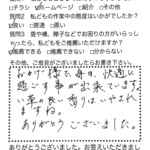 □チラシ ☑ホームページ □紹介 □その他
質問2 私どもの作業中の態度はいかがでしたか？
☑良い □普通 □悪い
質問3 畳や襖、障子などでお困りの方がいらっし
ゃったら、私どもをご推薦いただけますか？
☑推薦できる □推薦できない □分からない
その他、ご意見がございましたらお書き下さい。
おかげ様で毎日、快適に
過ごす事が出来ています。
い草の良い香りはいやされ
ますね。
ありがとうございました。
ありがとうございました。お答えいただきまし